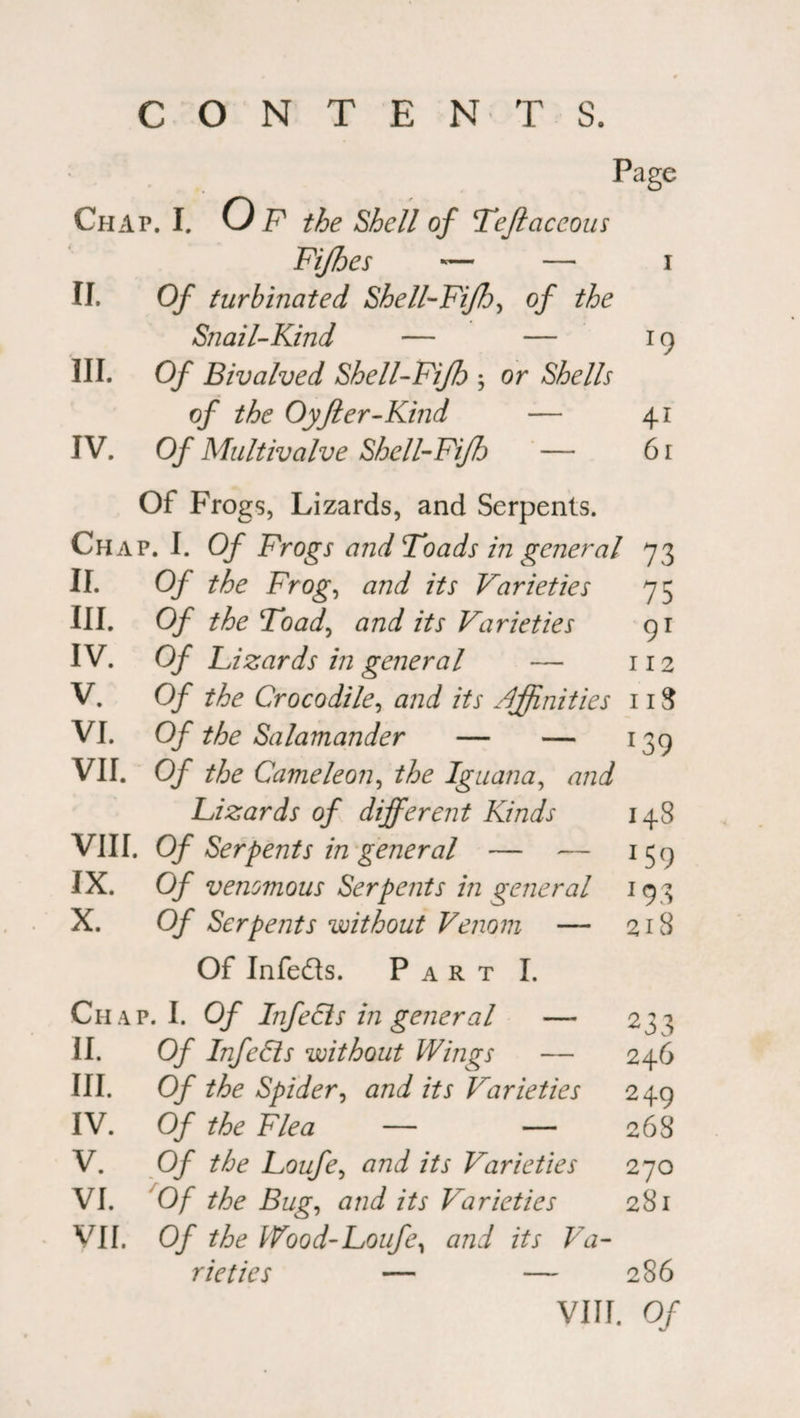 CONTENTS.
Page
CHAP. I. OF the Shell of Teſtaceous
Fiſhes — — 1
II. Of turbinated Shell-Fiſh, of the
Snail-Kind — — 19
III. Of Bivalved Shell-Fiſh ; or Shells
of the Oyſter-Kind — 41
IV. Of Multivalve Shell-Fiſh — 61
Of Frogs, Lizards, and Serpents.
CHAP. I. Of Frogs and Toads in general 73
II. Of the Frog, and its Varieties 75
III. Of the Toad, and its Varieties 91
IV. Of Lizards in general — 112
V. Of the Crocodile, and its Affinities 118
VI. Of the Salamander — — 139
VII. Of the Cameleon, the Iguana, and
Lizards of different Kinds 148
VIII. Of Serpents in general — — 159
IX. Of venomous Serpents in general 193
X. Of Serpents without Venom — 218
Of Inſects. PART I.
CHAP. I. Of Inſects in general — 233
II. Of Inſects without Wings — 246
III. Of the Spider, and its Varieties 249
IV. Of the Flea — — 268
V. Of the Louſe, and its Varieties 270
VI. Of the Bug, and its Varieties 281
VII. Of the Wood-Louſe, and its Va-
rieties — — 286
VIII. Of